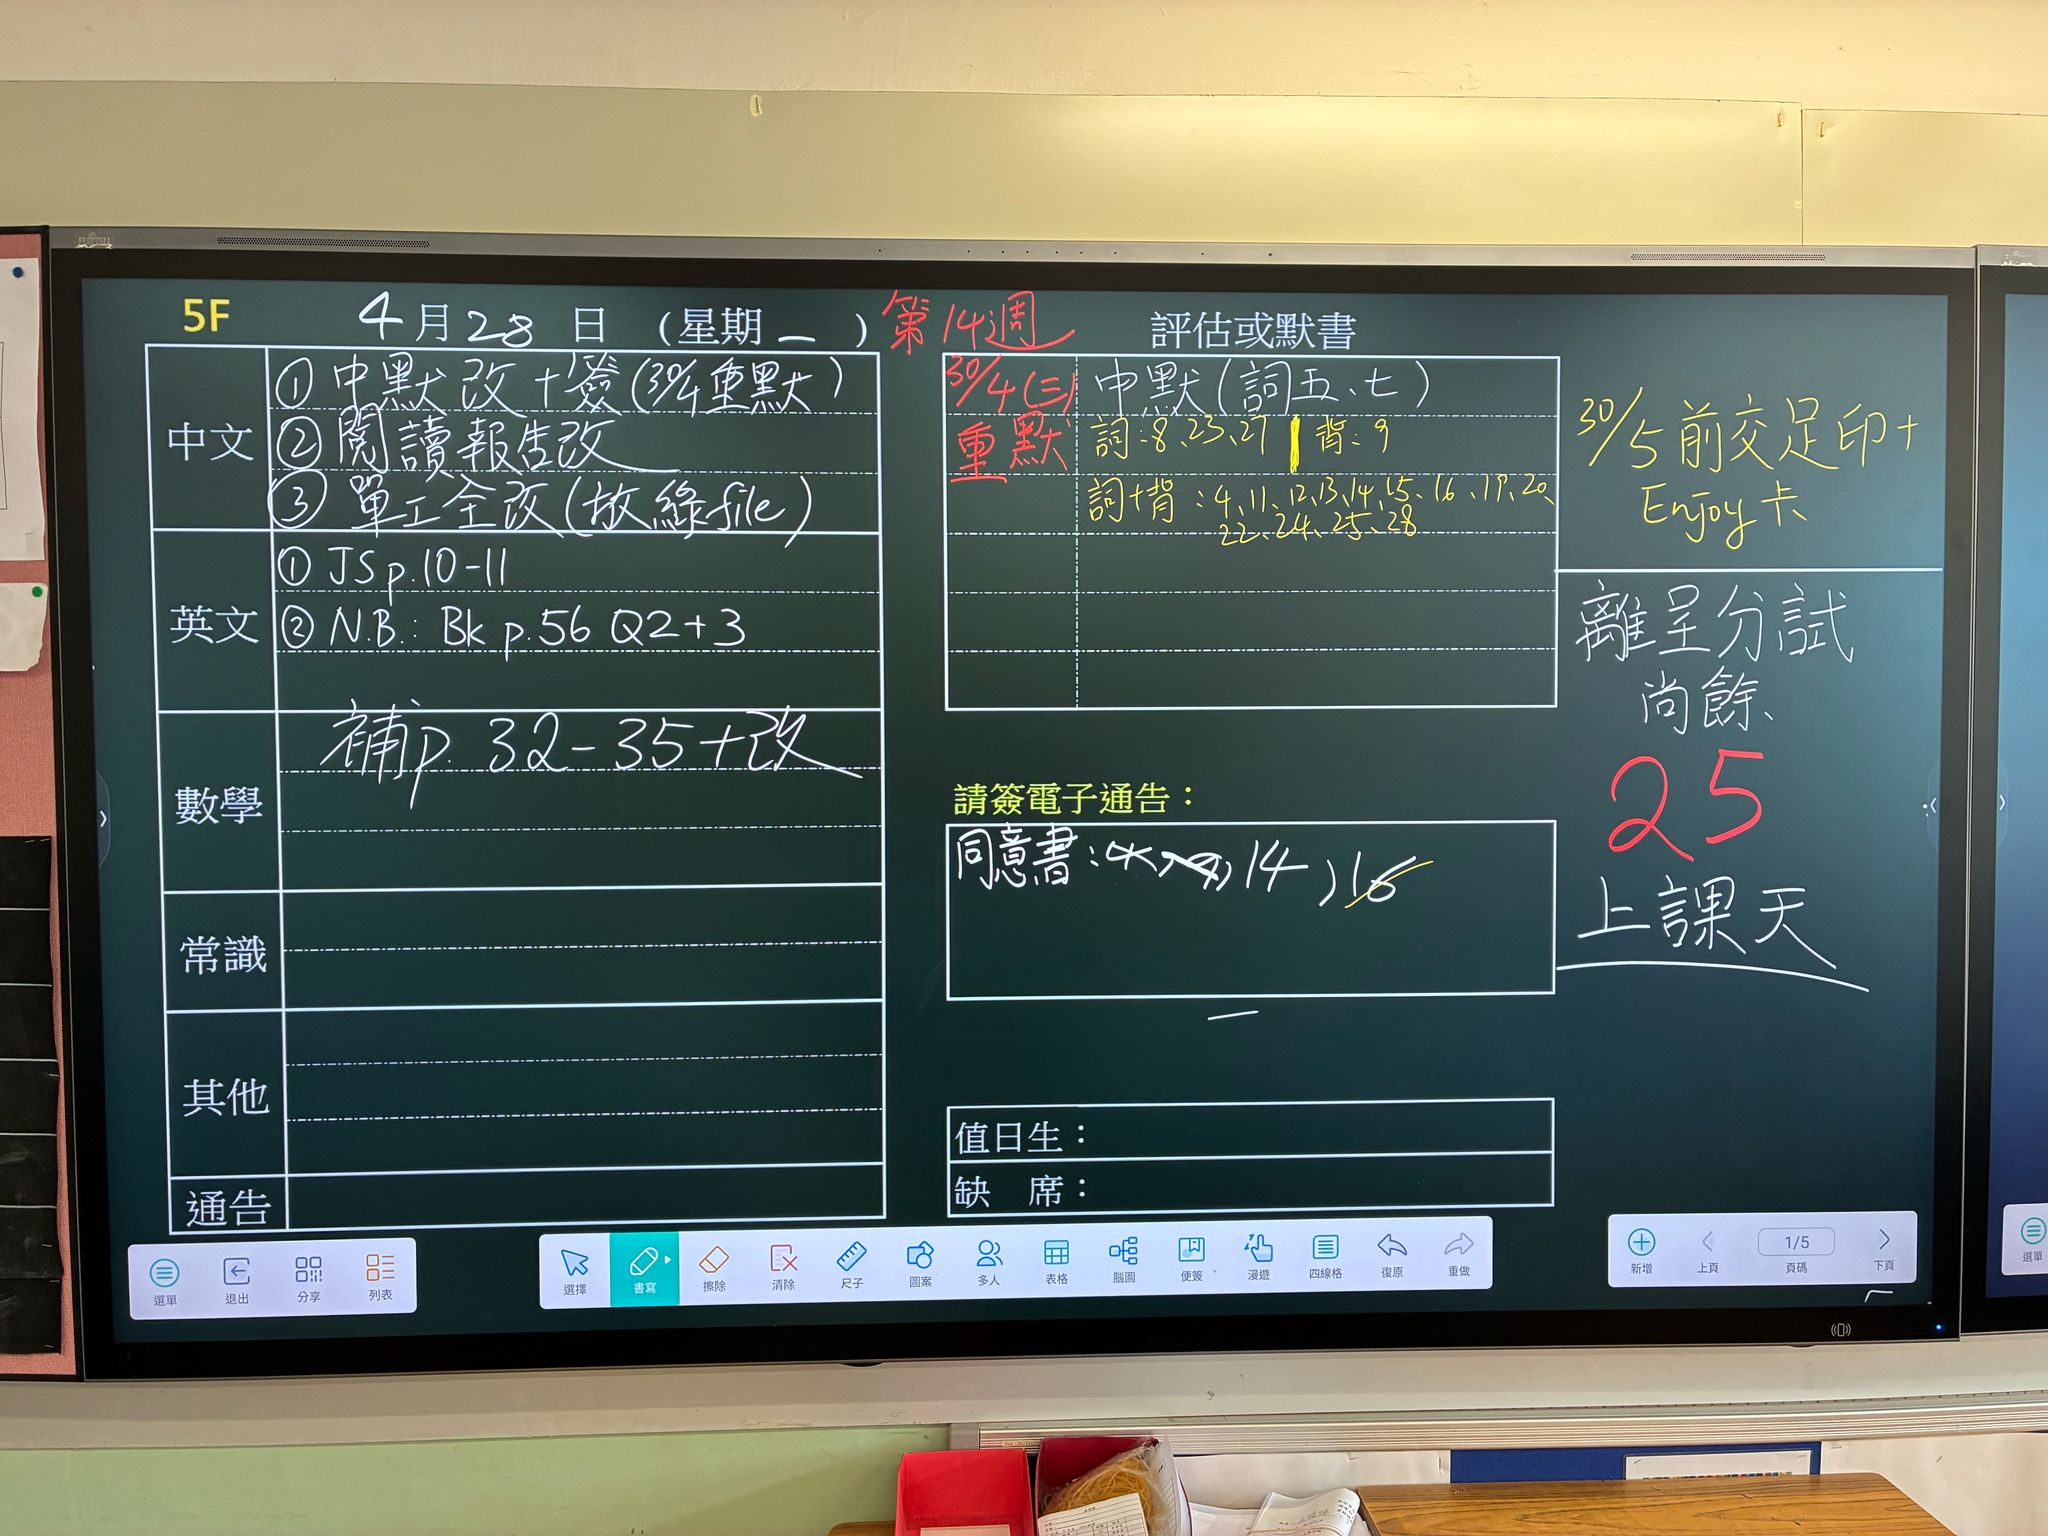 5F
4月28日（星期一）
第14週
中文
①中默改+簽(30/4重默)
②閱讀報告改
③單工全改(放綠file)
英文
①JS p.10-11
②N.B.: Bk p.56 Q2+3
數學
補p. 32-35+改
常識
其他
通告
評估或默書
30/4(三)
重默
中默(詞五、七)
詞:8、23、27
背:9
詞+背:4、11、12、13、14、15、16、19、20、
22、24、25、28
請簽電子通告：
同意書:
14, 16
值日生：
缺　席：
30/5前交足印+
Enjoy卡
離呈分試
尚餘
25
上課天
選單
退出
分享
列表
選擇
書寫
擦除
清除
尺子
圖案
多人
表格
腦圖
便簽
漫遊
四線格
復原
重做
新增
上頁
1/5
頁碼
下頁
選單